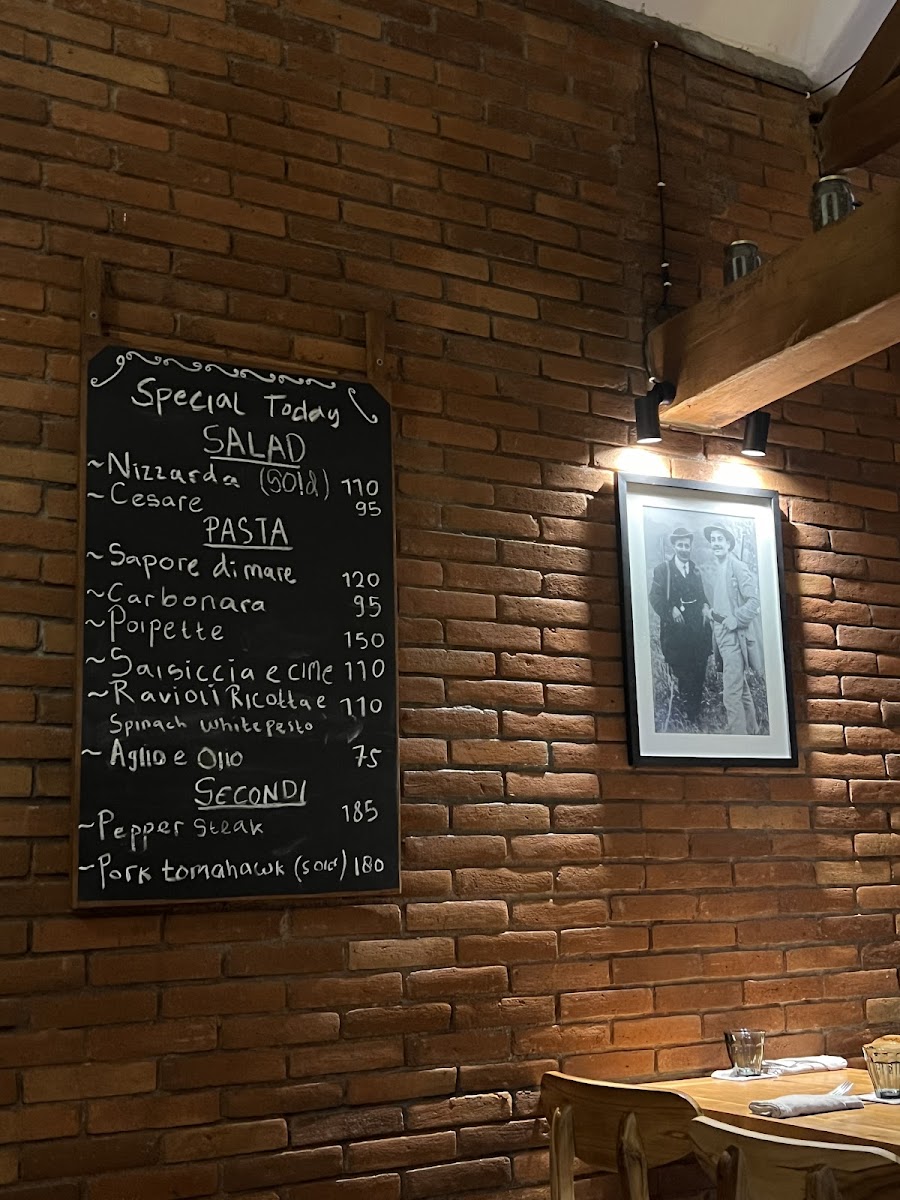 Special Today
SALAD
~Nizzarda (Sold) 110
~Cesare 95
PASTA
~Sapore di mare 120
~Carbonara 95
~Polpette 150
~Salsiccia e CIMe 110
~Ravioli Ricotta e 110
Spinach white pesto
~Aglio e Olio 75
SECONDI
~Pepper Steak 185
~Pork tomahawk (Sold) 180